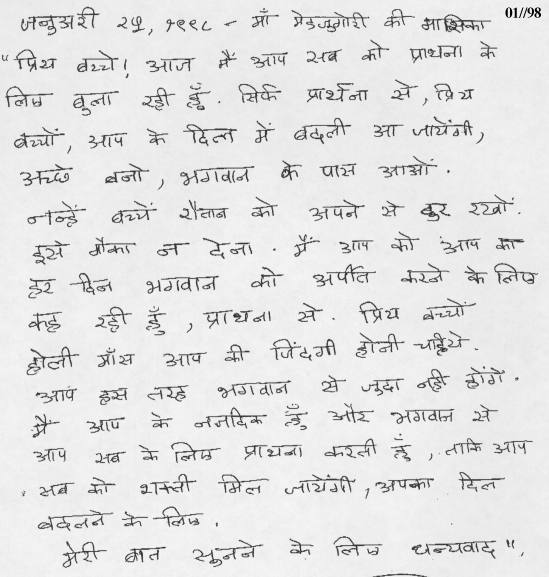 01//98
जनुअरी २५, १९९८ - माँ मेडजुगोरी की मासिका
"प्रिय बच्चे! आज मैं आप सब को प्राथना के
लिए बुला रही हूँ. सिर्फ प्रार्थना से, प्रिय
बच्चों, आप के दिल में बदली आ जायेंगी,
अच्छे बनो, भगवान के पास आओं.
नन्हें बच्चें शैतान को अपने से दुर रखों.
इसे मौका न देना. मैं आप को आप का
हर दिन भगवान को अर्पीत करने के लिए
कह रही हुँ, प्राथना से. प्रिय बच्चों
होली माँस आप की जिंदगी होनी चाहीये.
आप इस तरह भगवान से जुदा नही होंगे.
मैं आप के नजदिक हुँ और भगवान से
आप सब के लिए प्राथना करती हुँ, ताकि आप
सब को शक्ती मिल जायेंगी, अपका दिल
बदलने के लिए.
मेरी बात सूनने के लिए धन्यवाद",